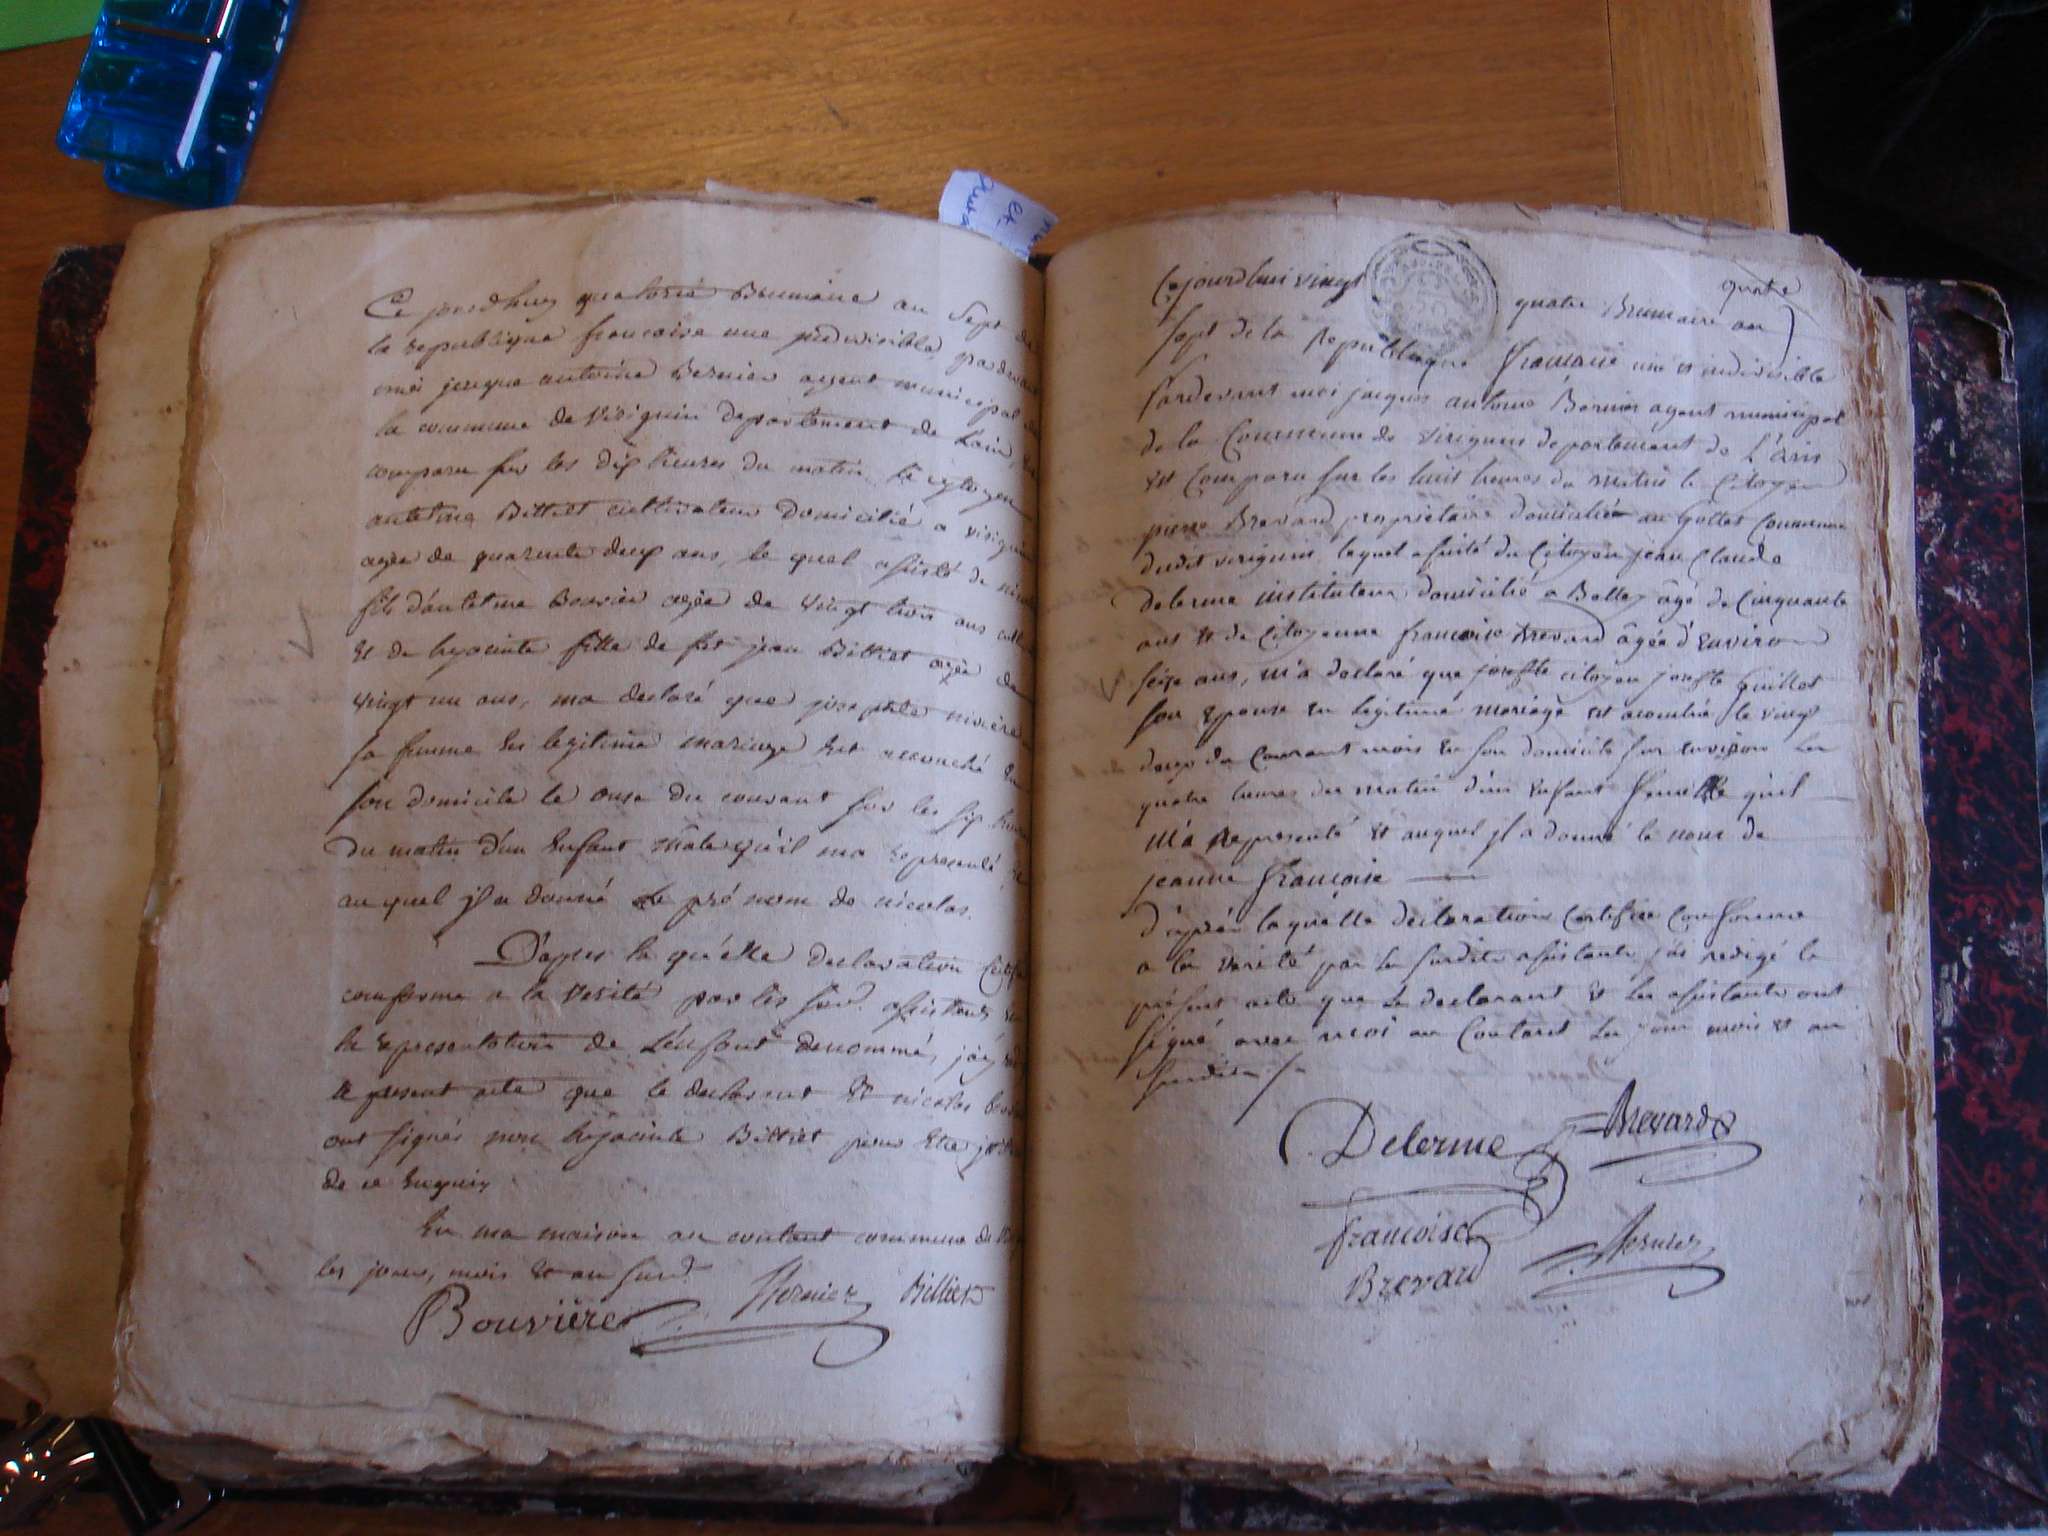 Ce jourdhuy quatorze Brumaire an Sept de
la republique francoise une indivisible, pardevant
moi jacque antoine Bernier agent municipal de
la commune de Virignin departement de L'ain, est
comparu sur les dix heures du matin le cytoyen
antelme Billiet cultivateur domicilié a virignin
agée de quarente deux ans, le quel assisté de nicolas
fils d'antelme Bouvier agée de vingt trois ans
et de hyacinte fille de fut jean Billiet agée de
vingt un ans, ma declaré que josephte
sa femme en legitime mariage est accouché en
son domicile le onze du courant sur les six heures
du matin d'un Enfant Male qu'il ma representé, et
au quel il a donné le pré nom de nicolas.
D'apres la qu'elle declaration
conforme a la Verité par les susd. assistants
la representation de L'enfant denommé, j'ay
le present acte que le declarant et nicolas
ont signés non hyacinte Billiet pour etre
de ce Enquix
En ma maison au coutant commune de
les jour, mois et an susd.
Bouvière Bernier Billiet
et
quatre
Ce jourdhui vingt quatre Brumaire an
sept de la Republique francaise une et indivisible
Pardevant moi jacques antoine Bernier agent municipal
de la Commune de virignin departement de L'ain
est Comparu sur les huit heures du matin le Citoyen
pierre Brevard proprietaire domicilié au Commune
dudit virignin lequel assisté du Citoyen jean Claude
delerme instituteur domicilié a Belley âgé de Cinquante
ans et de Citoyenne francoise Brevard âgée d'environ
seize ans, m'a declaré que josephte citoyen josephte Guillot
son Epouse en legitime mariage est acouchée le vingt
deux du Courant mois en son domicile sur environ les
quatre heures du matin d'un Enfant femelle qu'il
m'a Representé et auquel il a donné le nom de
jeanne françoise
d'après laquelle declaration Certifiée Conforme
a la verité par les susdits assistants j'ai redigé le
présent acte que le declarant et les assistants ont
signé avec moi au Coutant les jour mois et an
susdits
Delerme Brevard
francoise Bernier
Brevard